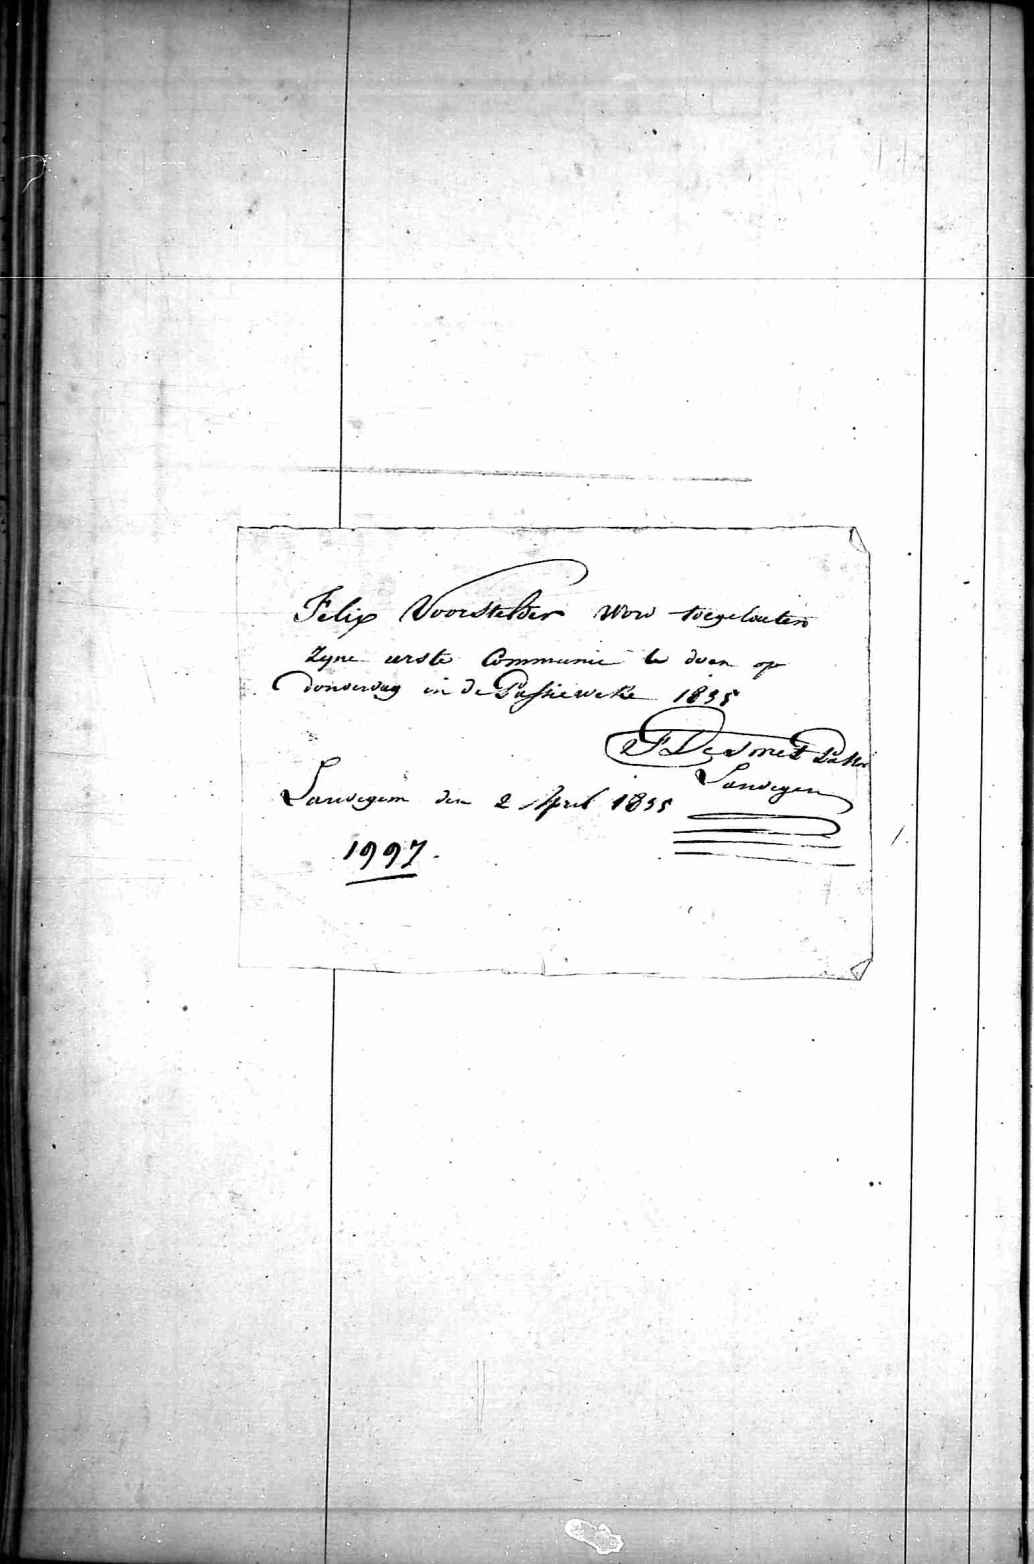 Felix Voorstelder word toegelaeten
Zyne eerste Communie te doen op
donderdag in de Passieweke 1835
F De Smet Pastor
Landegem
Landegem den 2 April 1835
1997.